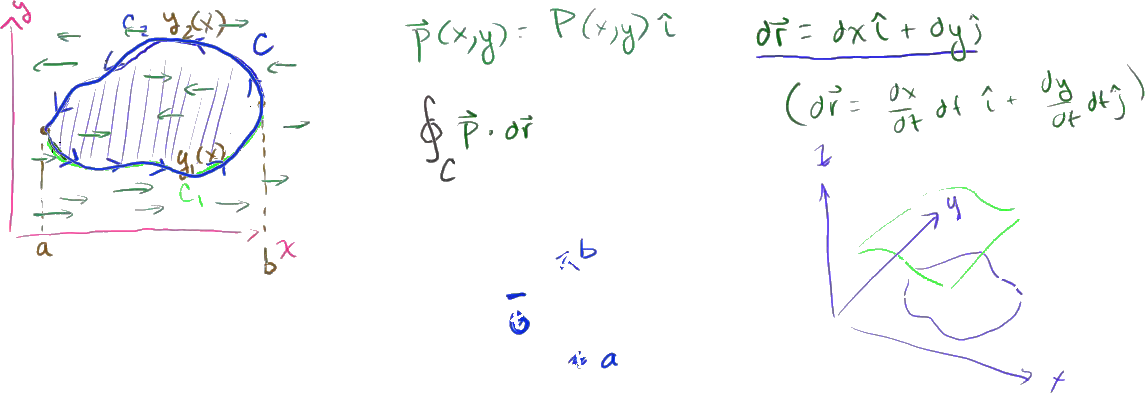 y
C₂ y₂(x)
C
y₁(x)
C₁
a
b
x
p⃗(x,y) = P(x,y) î
∮_C p⃗ · dr⃗
b
a
dr⃗ = dx î + dy ĵ
(dr⃗ = dx/dt dt î + dy/dt dt ĵ)
z
y
x